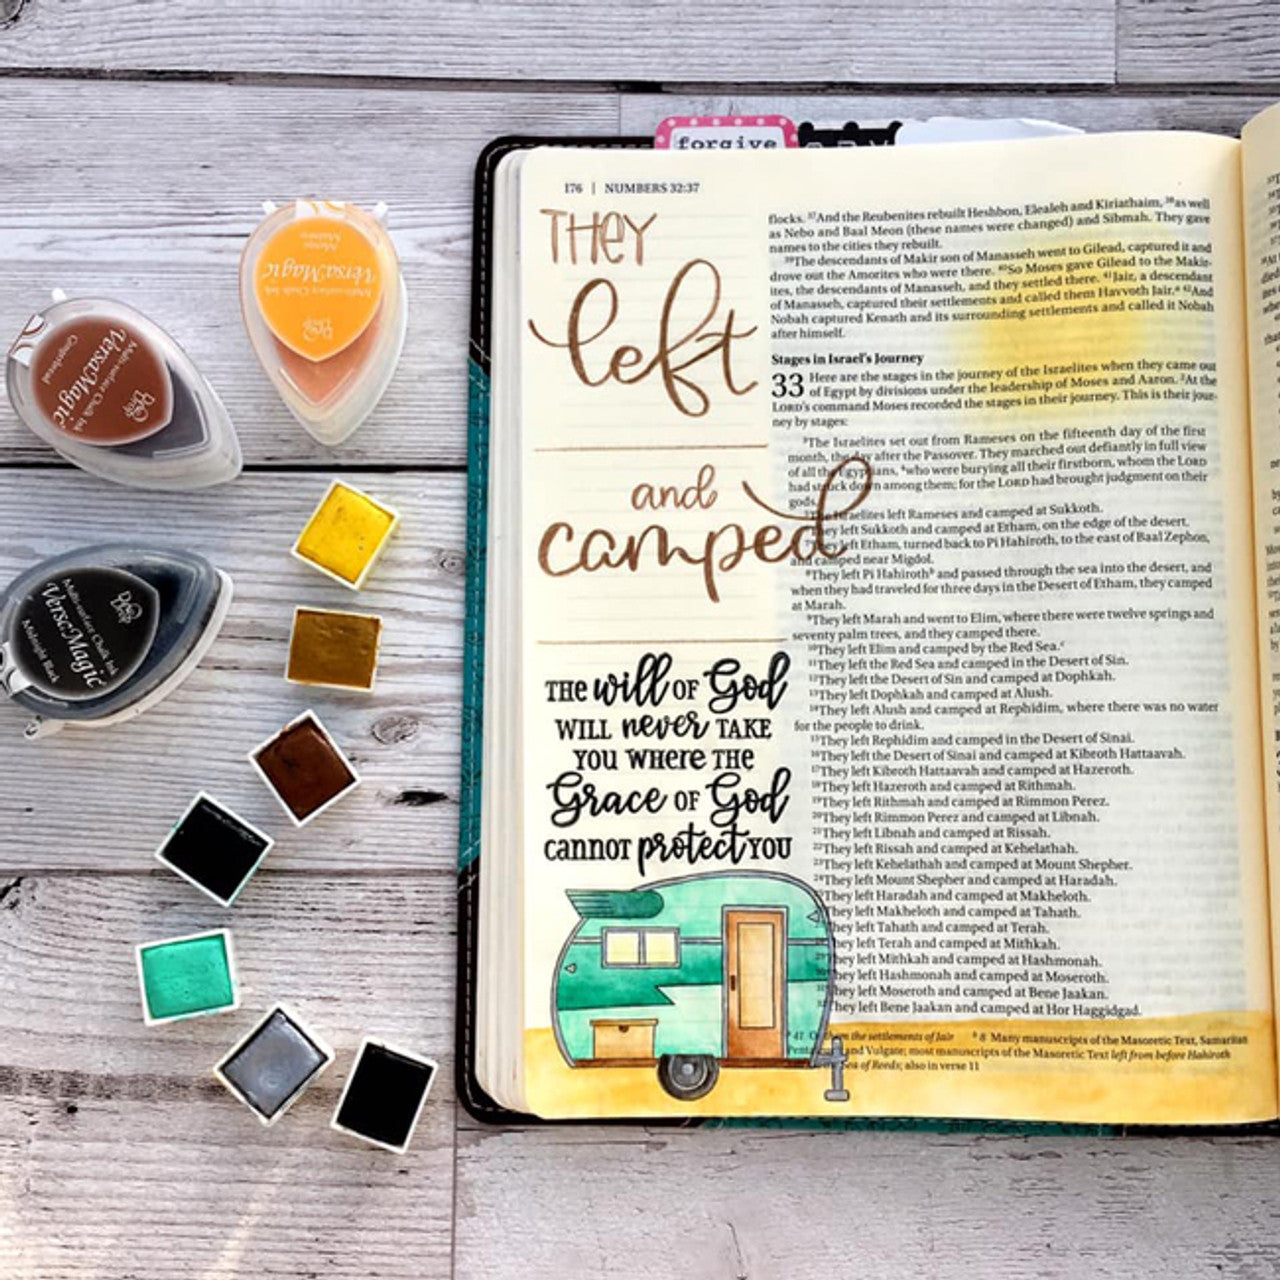 forgive
176 | NUMBERS 32:37
THEY
left
and
camped
THE will OF God
WILL never TAKE
YOU WHERE THE
Grace OF God
CANNOT protect YOU
flocks. 37And the Reubenites rebuilt Heshbon, Elealeh and Kiriathaim, 38as well
as Nebo and Baal Meon (these names were changed) and Sibmah. They gave
names to the cities they rebuilt.
39The descendants of Makir son of Manasseh went to Gilead, captured it and
drove out the Amorites who were there. 40So Moses gave Gilead to the Makir-
ites, the descendants of Manasseh, and they settled there. 41Jair, a descendant
of Manasseh, captured their settlements and called them Havvoth Jair.a 42And
Nobah captured Kenath and its surrounding settlements and called it Nobah
after himself.
Stages in Israel's Journey
33 Here are the stages in the journey of the Israelites when they came out
of Egypt by divisions under the leadership of Moses and Aaron. 2At the
LORD's command Moses recorded the stages in their journey. This is their jour-
ney by stages:
3The Israelites set out from Rameses on the fifteenth day of the first
month, the day after the Passover. They marched out defiantly in full view
of all the Egyptians, 4who were burying all their firstborn, whom the LORD
had struck down among them; for the LORD had brought judgment on their
gods.
5The Israelites left Rameses and camped at Sukkoth.
6They left Sukkoth and camped at Etham, on the edge of the desert.
7They left Etham, turned back to Pi Hahiroth, to the east of Baal Zephon,
and camped near Migdol.
8They left Pi Hahirothb and passed through the sea into the desert, and
when they had traveled for three days in the Desert of Etham, they camped
at Marah.
9They left Marah and went to Elim, where there were twelve springs and
seventy palm trees, and they camped there.
10They left Elim and camped by the Red Sea.c
11They left the Red Sea and camped in the Desert of Sin.
12They left the Desert of Sin and camped at Dophkah.
13They left Dophkah and camped at Alush.
14They left Alush and camped at Rephidim, where there was no water
for the people to drink.
15They left Rephidim and camped in the Desert of Sinai.
16They left the Desert of Sinai and camped at Kibroth Hattaavah.
17They left Kibroth Hattaavah and camped at Hazeroth.
18They left Hazeroth and camped at Rithmah.
19They left Rithmah and camped at Rimmon Perez.
20They left Rimmon Perez and camped at Libnah.
21They left Libnah and camped at Rissah.
22They left Rissah and camped at Kehelathah.
23They left Kehelathah and camped at Mount Shepher.
24They left Mount Shepher and camped at Haradah.
They left Haradah and camped at Makheloth.
They left Makheloth and camped at Tahath.
They left Tahath and camped at Terah.
They left Terah and camped at Mithkah.
They left Mithkah and camped at Hashmonah.
They left Hashmonah and camped at Moseroth.
They left Moseroth and camped at Bene Jaakan.
They left Bene Jaakan and camped at Hor Haggidgad.
a 41 Or them the settlements of Jair b 8 Many manuscripts of the Masoretic Text, Samaritan
and Vulgate; most manuscripts of the Masoretic Text left from before Hahiroth
Sea of Reeds; also in verse 11
Mango
Madness
VersaMagic
Multi-surface Chalk Ink
Dew
Drop
Multi-surface Chalk Ink
VersaMagic
Gingerbread
Dew
Drop
Dew
Drop
Multi-surface Chalk Ink
VersaMagic
Midnight Black